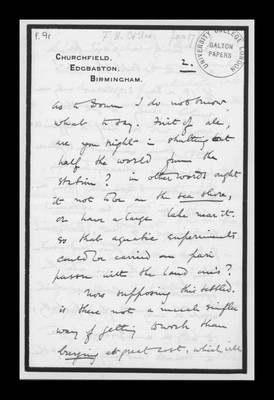 F. 9r
Jan 17
2.
UNIVERSITY COLLEGE LONDON
GALTON
PAPERS
CHURCHFIELD,
EDGBASTON,
BIRMINGHAM.
As to Down I do not know
what to say. First of all,
are you right in shutting out
half the world from the
station? in other words ought
it not to be on the sea shore,
or have a large lake near it.
so that aquatic experiments
could be carried on pari
passu with the land one's?
Now supposing this settled.
is there not a much simpler
way of getting to work than
buying at great cost, which will